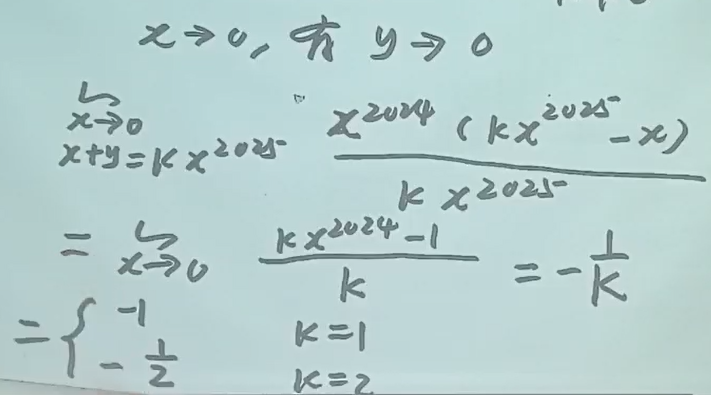 x→0, 有 y→0
lim x→0 x+y=kx^2025 x^2024(kx^2025-x)/kx^2025
= lim x→0 kx^2024-1/k = -1/k
= { -1 k=1
-1/2 k=2